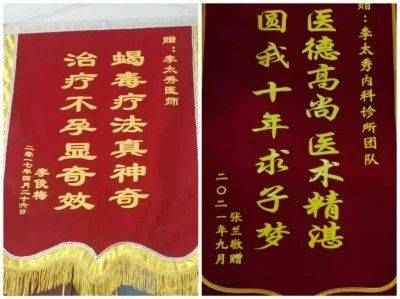 赠：李太秀医师
蝎毒疗法真神奇
治疗不孕显奇效
李俊梅
二零一七年四月二十六日
赠：李太秀内科诊所团队
医德高尚医术精湛
圆我十年求子梦
张兰敬赠
二〇二一年九月